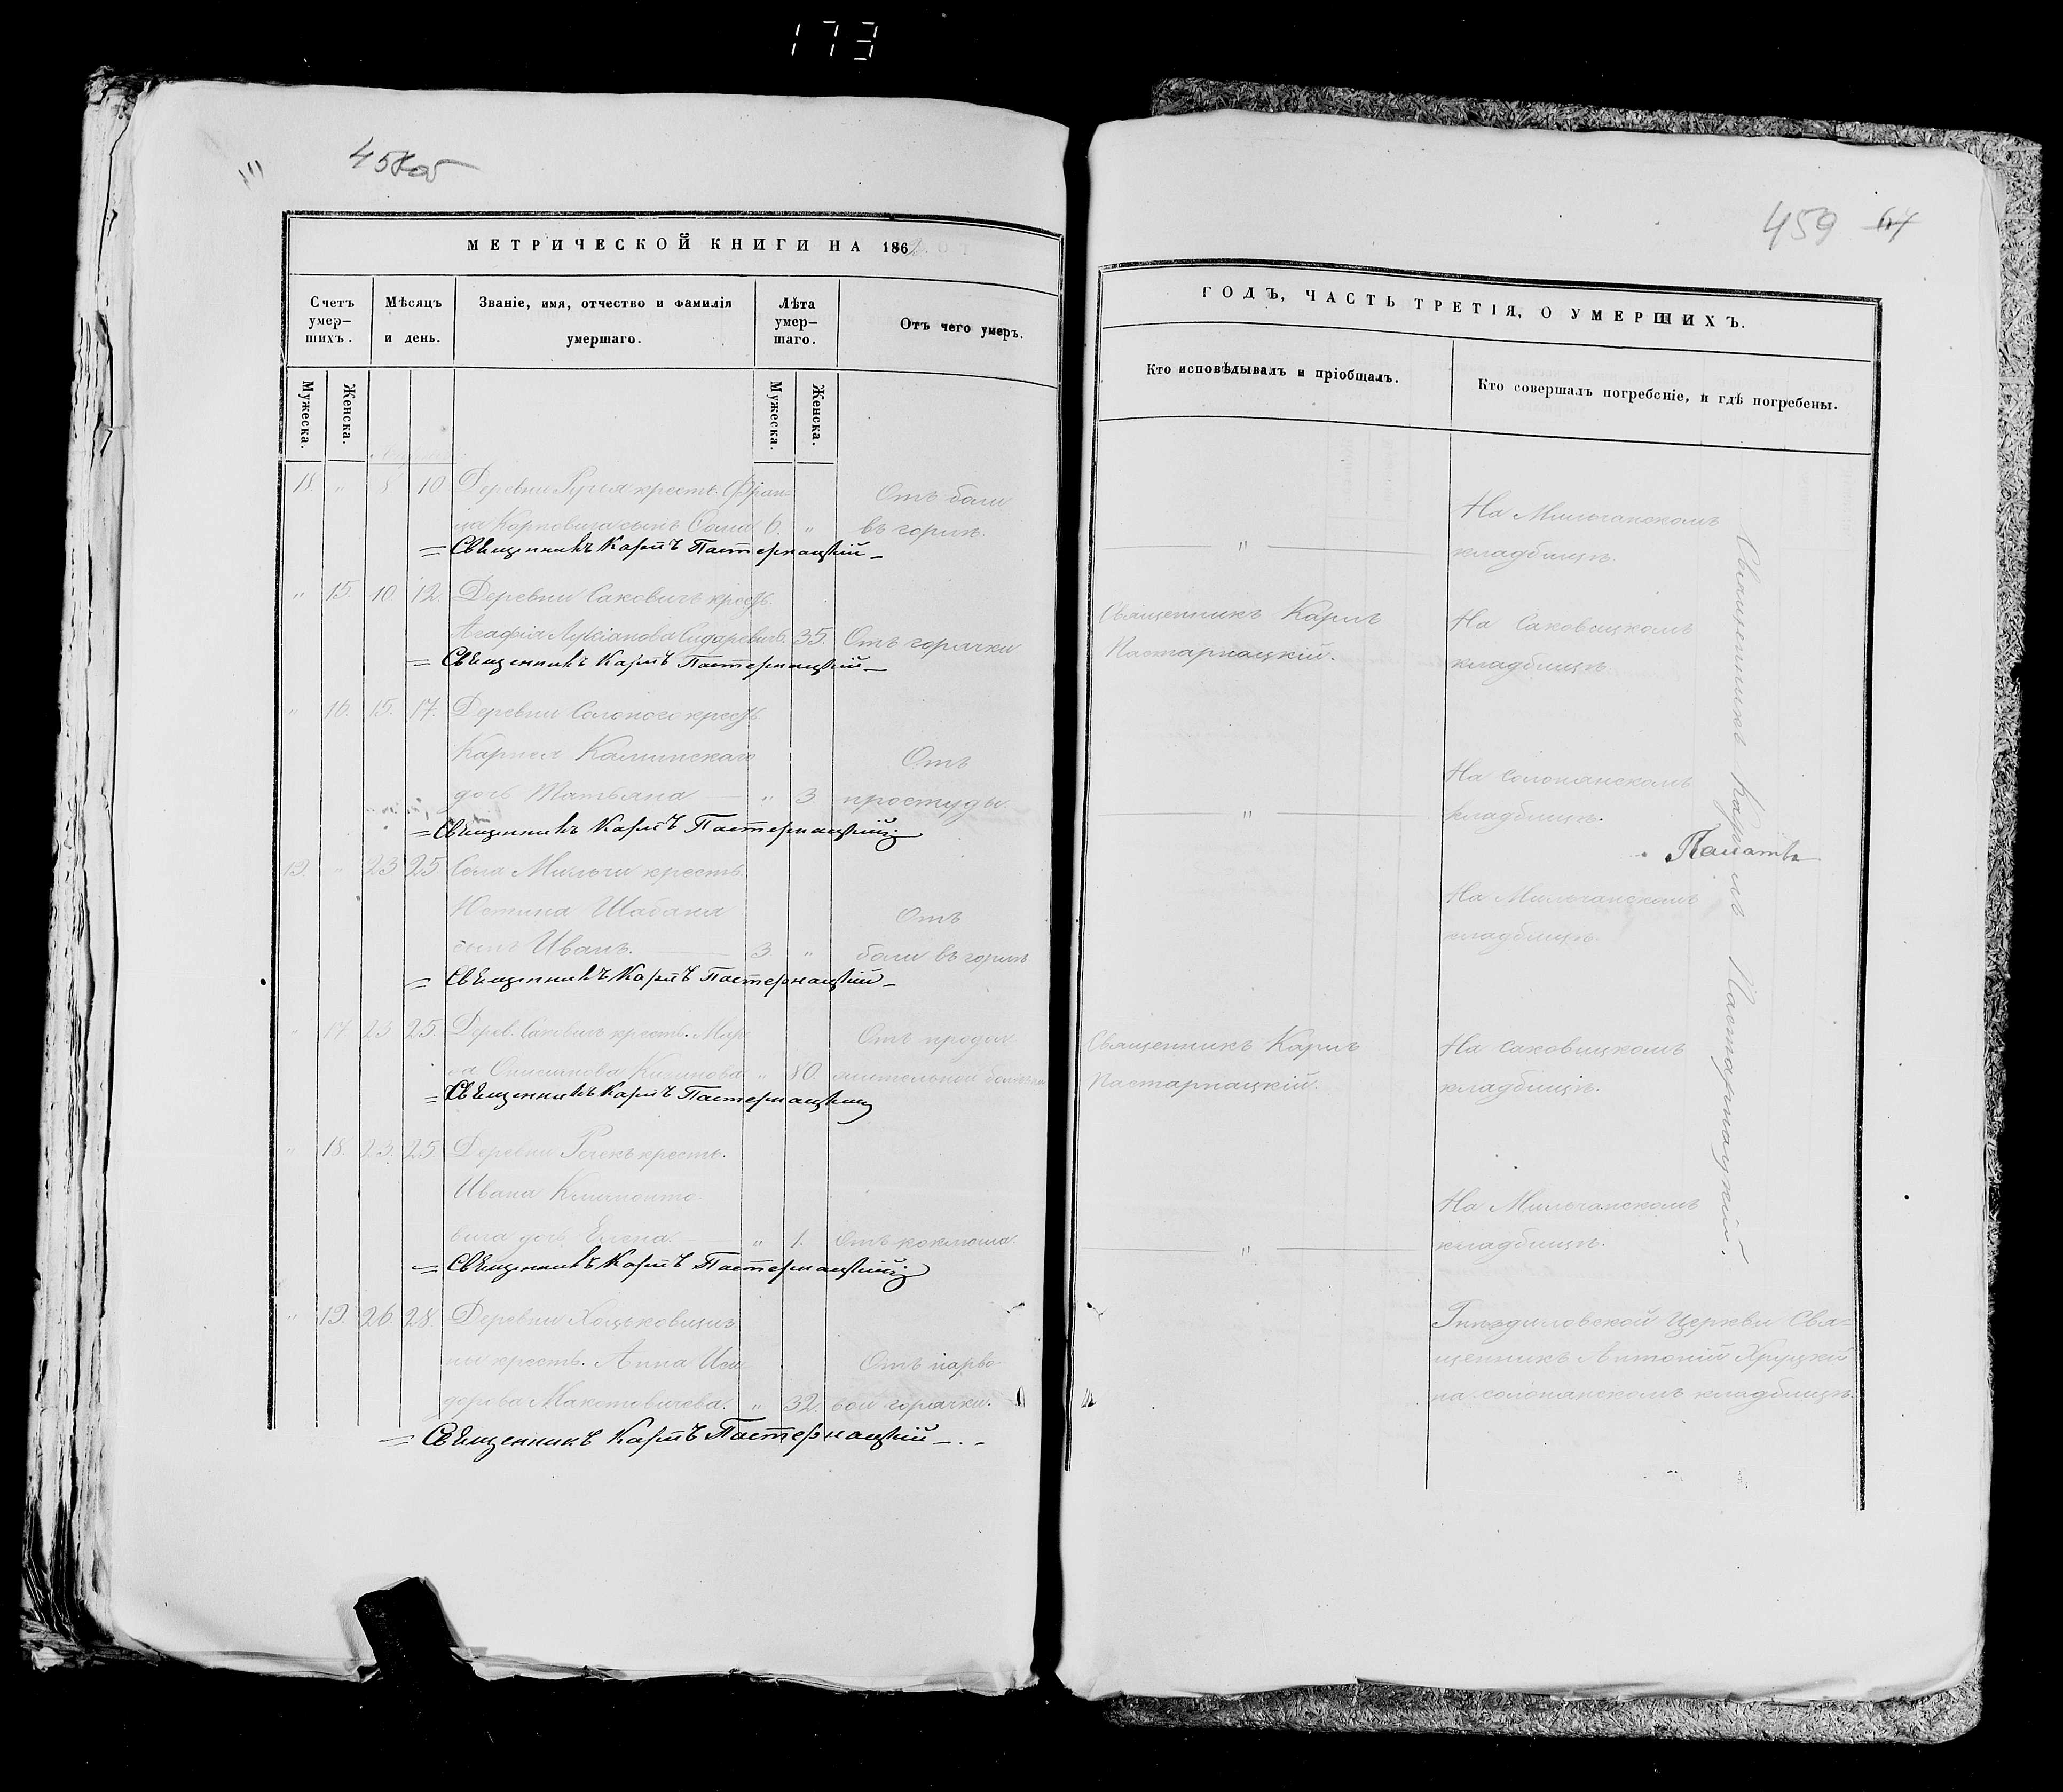 173
458об
МЕТРИЧЕСКОЙ КНИГИ НА 1862
Счетъ умер-шихъ.
Мѣсяцъ и день.
Званіе, имя, отчество и фамилія умершаго.
Лѣта умер-шаго.
Отъ чего умеръ.
Мужеска.
Женска.
Мужеска.
Женска.
18. " 8 10 Деревни крест. Фран- Отъ боли
ца Карповича сынъ 6. " въ горлѣ.
= Священникъ Карпъ Пастернацкій -
" 15. 10 12. Деревни Саковичъ крест.
Агафія Лукіанова Сидаревичъ. 35. Отъ горячки
= Священникъ Карпъ Пастернацкій -
" 16. 15. 17. Деревни Солоного крест.
Карпея Калинскаго Отъ
дочь Татьяна " 3 простуды.
= Священникъ Карпъ Пастернацкій
19 " 23 25 Села Мильчи крестъ.
Юстина Шабана Отъ
сынъ Иванъ. 3. " боли въ горлѣ
= Священникъ Карпъ Пастернацкій -
" 17 23 25. Дерев. Саковичъ крест. Отъ продол
" 80. жительной болѣзни
= Священникъ Карпъ Пастернацкій
" 18. 23. 25 Деревни Речекъ крест.
Ивана Климонто-
вича дочь Елена. " 1. Отъ коклюша.
= Священникъ Карпъ Пастернацкій
" 19. 26. 28 Деревни Хацьковщи-
ны крестъ. Анна Иси-
дорова Макотовичева. " 32. вой горячки.
= Священникъ Карпъ Пастернацкій - . -
459 64
ГОДЪ, ЧАСТЬ ТРЕТІЯ, О УМЕРШИХЪ.
Кто исповѣдывалъ и пріобщалъ.
Кто совершалъ погребеніе, и гдѣ погребены.
На Мильчанскомъ
" кладбищѣ.
Священникъ Карпъ На Саковицкомъ
Пастарнацкій. кладбищѣ.
На Солонянскомъ
" кладбищѣ.
На Мильчанскомъ
кладбищѣ.
Священникъ Карпъ На Саковицкомъ
Пастарнацкій. кладбищѣ.
На Мильчанскомъ
" кладбищѣ.
Гнѣздиловской Церкви Свя-
щенникъ Антоній Хруцкій
на Солонянскомъ кладбищѣ
Священникъ Карпъ Пастарнацкій.